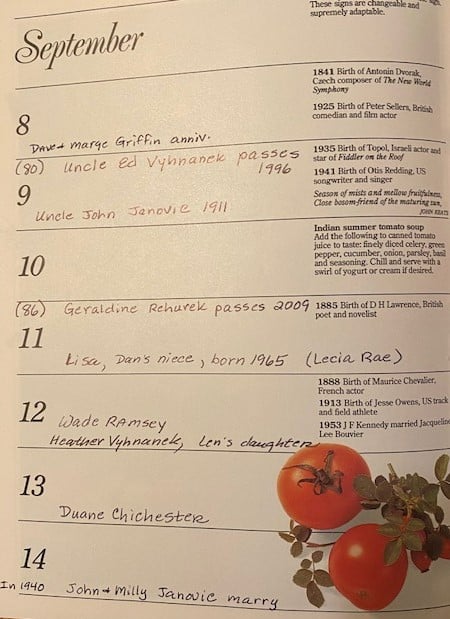 These signs are changeable and
supremely adaptable.
September
1841 Birth of Antonin Dvorak,
Czech composer of The New World
Symphony
1925 Birth of Peter Sellers, British
comedian and film actor
8
Dave + Marge Griffin anniv.
(80) Uncle Ed Vyhnanek passes
1996
1935 Birth of Topol, Israeli actor and
star of Fiddler on the Roof
1941 Birth of Otis Redding, US
songwriter and singer
Season of mists and mellow fruitfulness,
Close bosom-friend of the maturing sun,
JOHN KEATS
9
Uncle John Janovic 1911
Indian summer tomato soup
Add the following to canned tomato
juice to taste: finely diced celery, green
pepper, cucumber, onion, parsley, basil
and seasoning. Chill and serve with a
swirl of yogurt or cream if desired.
10
(86) Geraldine Rehurek passes 2009
1885 Birth of D H Lawrence, British
poet and novelist
11
Lisa, Dan's niece, born 1965 (Lecia Rae)
1888 Birth of Maurice Chevalier,
French actor
1913 Birth of Jesse Owens, US track
and field athlete
1953 J F Kennedy married Jacqueline
Lee Bouvier
12
Wade Ramsey
Heather Vyhnanek, Len's daughter
13
Duane Chichester
14
In 1940 John + Milly Janovic marry